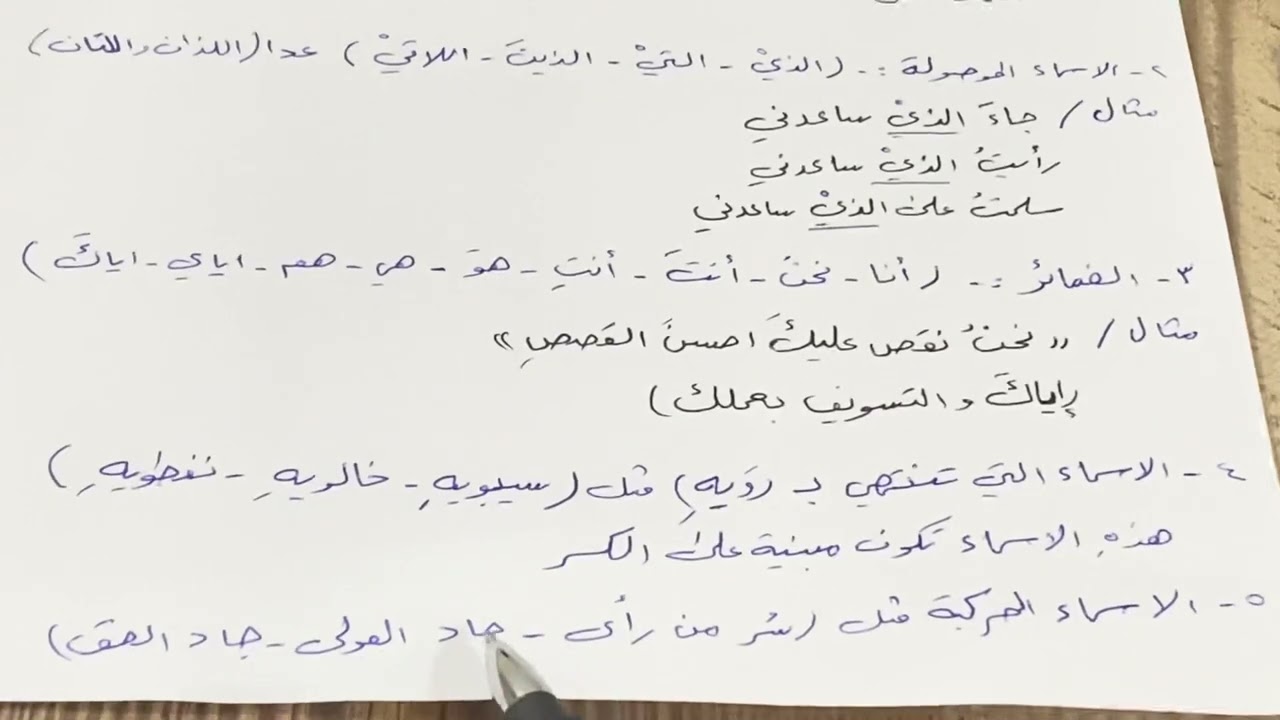 ٢- الاسماء الموصولة :- (الذيْ - التيْ - الذينَ - اللاتيْ) عدا (اللذان واللتان)
مثال / جاءَ الذيْ ساعدني
رأيتُ الذيْ ساعدني
سلمتُ على الذيْ ساعدني
٣- الضمائر :- (أنا - نحنُ - أنتَ - أنتِ - هوَ - هي - هم - اياي - اياكَ)
مثال / « نحنُ نقص عليكَ احسنَ القصصِ »
إياكَ والتسويف بعملك)
٤- الاسماء التي تنتهي بـ (وَيهِ) مثل (سيبويهِ - خالويهِ - نفطويهِ)
هذهِ الاسماء تكون مبنية على الكسر
٥- الاسماء المركبة مثل (سُر من رأى - جاد المولى - جاد الحق)